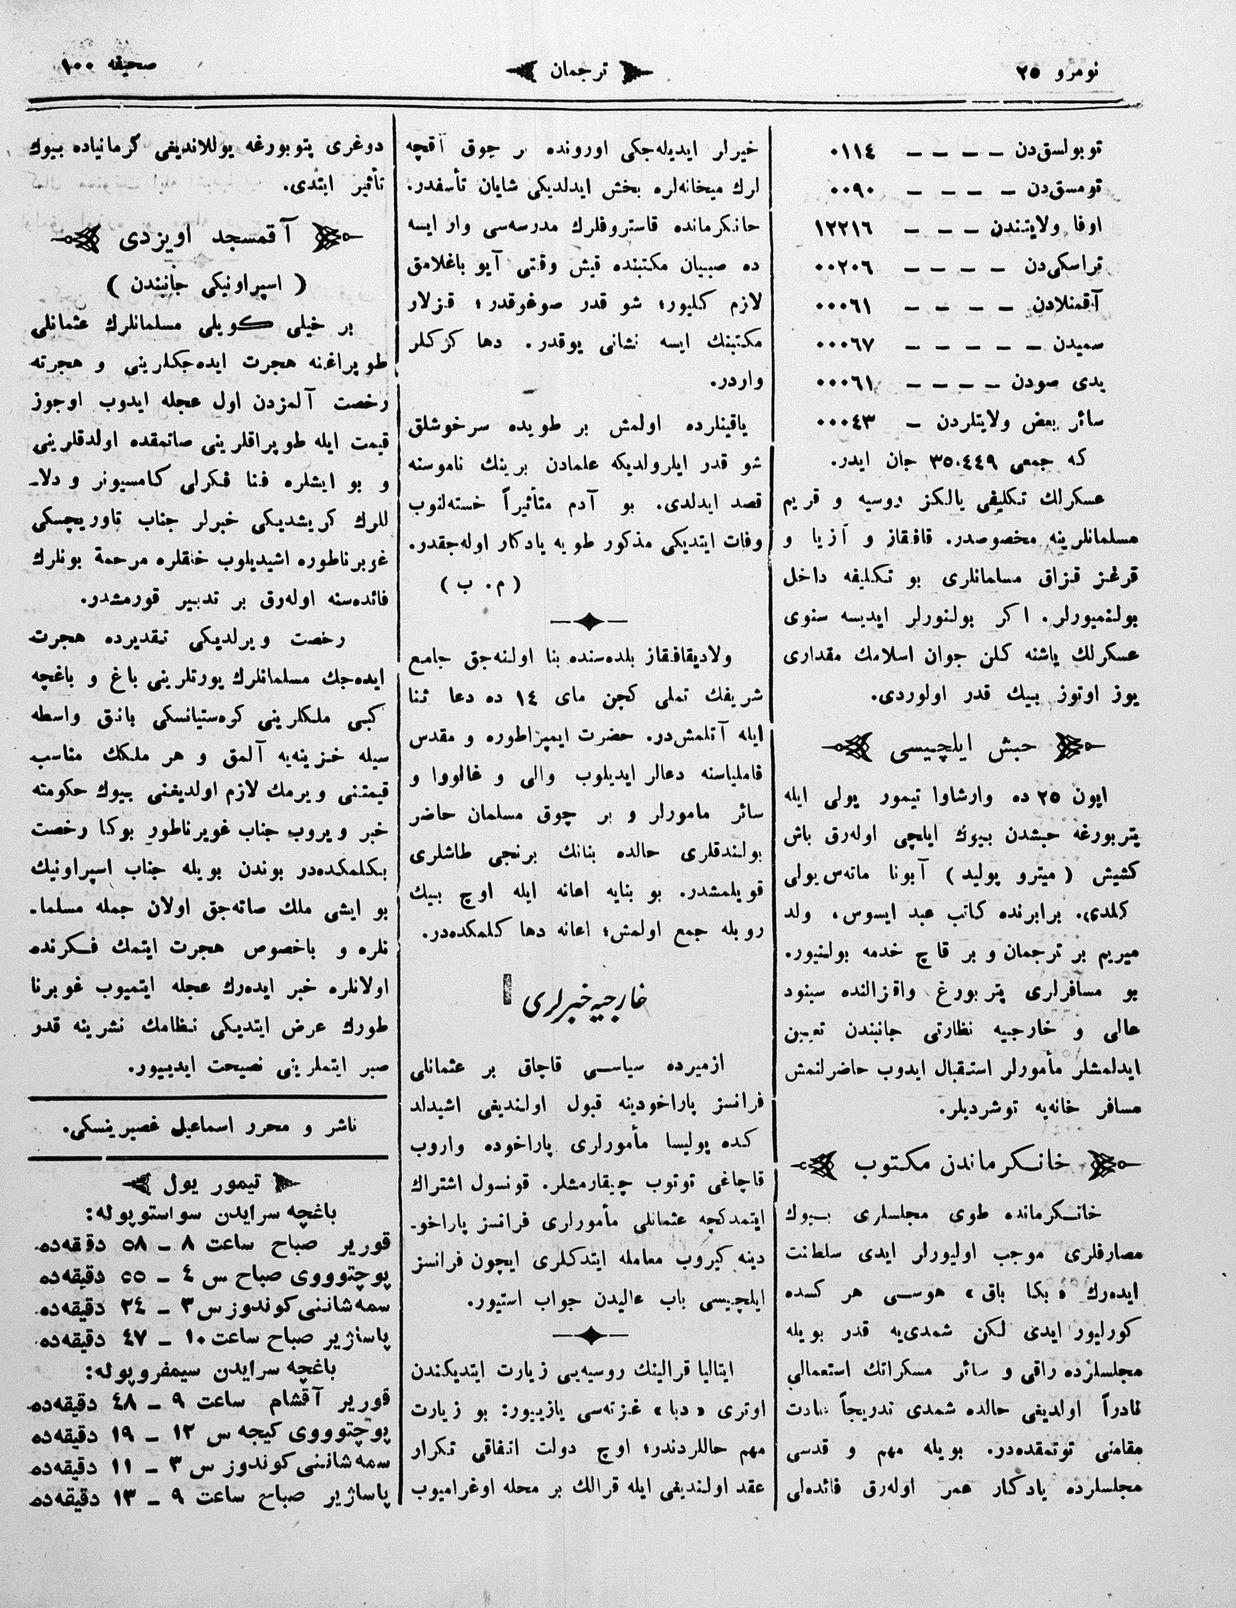 نومرو ٢٥
ترجمان
صحيفه ١٠٠
توبولسق‌دن — — — — ٠١١٤
تومسق‌دن — — — — ٠٠٩٠
اوفا ولايتندن — — — ١٢٢١٦
تراسكى‌دن — — — — ٠٠٢٠٦
آقمنلادن — — — — ٠٠٠٦١
سميدن — — — — — ٠٠٠٦٧
يدى صودن — — — — ٠٠٠٦١
سائر بعض ولايتلردن — ٠٠٠٤٣
كه جمعى ٣٥.٤٤٩ جان ايدر.
عسكرلك تكليفى يالكز روسيه و قريم
مسلمانلرينه مخصوصدر. قافقاز و آزيا و
قرغز قزاق مسلمانلرى بو تكليفه داخل
بولنميورلر. اكر بولنورلر ايديسه سنوى
عسكرلك ياشنه كلن جوان اسلامك مقدارى
يوز اوتوز بيك قدر اولوردى.
حبش ايلچيسى
ايون ٢٥ ده وارشاوا تيمور يولى ايله
پتربورغه حبشدن بيوك ايلچى اوله‌رق باش
كشيش ( ميترو پوليد ) آبونا ماته‌س يولى
كلمدى. برابرنده كاتب عبد ايسوس، ولد
ميريم بر ترجمان و بر قاچ خدمه بولنيور.
بو مسافرلرى پتربورغ واقزالنده سينود
عالى و خارجيه نظارتى جانبندن تعيين
ايدلمشلر مأمورلر استقبال ايدوب حاضرلنمش
مسافر خانه‌يه توشرديلر.
خانكرماندن مكتوب
خانكرمانده طوى مجلسلرى بيوك
مصارفلرى موجب اوليورلر ايدى سلطانت
ايده‌رك «بكا باق» هوسى هر كسده
كورليور ايدى لكن شمدى‌يه قدر بويله
مجلسلرده راقى و سائر مسكراتك استعمالى
نادراً اولديغى حالده شمدى تدريجاً عادت
مقامنى توتمقده‌در. بويله مهم و قدسى
مجلسلرده يادكار همر اوله‌رق فائده‌لى
خيرلر ايديله‌جكى اوررونده بر جوق آقچه
لرك ميخانه‌لره بخش ايدلديكى شايان تأسفدر.
خانكرمانده قاستروفلرك مدرسه‌سى وار ايسه
ده صبيان مكتبنده قيش وقتى آيو باغلامق
لازم كليور؛ شو قدر صوغوقدر؛ قزلار
مكتبنك ايسه نشانى يوقدر. دها كركلر
واردر.
ياقينلرده اولمش بر طويده سرخوشلق
شو قدر ايلرولديكه علمادن برينك ناموسنه
قصد ايدلدى. بو آدم متأثيراً خسته‌لنوب
وفات ايتديكى مذكور طويه يادكار اوله‌جقدر.
( م. ب )
ولاديقافقاز بلده‌سنده بنا اولنه‌جق جامع
شريفك تملى كچن ماى ١٤ ده دعا ثنا
ايله آتلمش‌در. حضرت ايمپراطوره و مقدس
فاملياسنه دعالر ايديلوب والى و غالووا و
سائر مامورلر و بر چوق مسلمان حاضر
بولندقلرى حالده بنانك برنجى طاشلرى
قويلمشدر. بو بنايه اعانه ايله اوچ بيك
روبله جمع اولمش؛ اعانه دها كلمكده‌در.
خارجيه خبرلرى
ازميرده سياسى قاچاق بر عثمانلى
فرانسز پاراخودينه قبول اولنديغى اشيدلد
كده پوليسا مأمورلرى پاراخوده واروب
قاچاغى توتوب چيقارمشلر. قونسول اشتراك
ايتمدكچه عثمانلى مأمورلرى فرانسز پاراخو-
دينه كيروب معامله ايتدكلرى ايچون فرانسز
ايلچيسى باب عاليدن جواب استيور.
ايتاليا قرالينك روسيه‌يى زيارت ايتديكندن
اوترى «دبا» غزته‌سى يازييور: بو زيارت
مهم حاللردندر؛ اوچ دولت اتفاقى تكرار
عقد اولنديغى ايله قرالك بر محله اوغراميوب
دوغرى پتوبورغه يوللانديغى كرمانياده بيوك
تأثير ايتدى.
آقمسجد اويزدى
( اسپراونيكى جانبندن )
بر خيلى كويلى مسلمانلرك عثمانلى
طوپراغنه هجرت ايده‌جكلرينى و هجرته
رخصت آلمزدن اول عجله ايدوب اوجوز
قيمت ايله طوپراقلرينى صاتمقده اولدقلرينى
و بو ايشلره فنا فكرلى كامسيونر و دلا-
للرك كريشديكى خبرلر جناب تاوريچسكى
غوبرناطوره اشيديلوب خلقلره مرحمة بونلرك
فائده‌سنه اوله‌رق بر تدبير قورمشدر.
رخصت ويرلديكى تقديرده هجرت
ايده‌جك مسلمانلرك يورتلرينى باغ و باغچه
كبى ملكلرينى كره‌ستيانسكى بانق واسطه
سيله خزينه‌يه آلمق و هر ملكك مناسب
قيمتنى ويرمك لازم اولديغنى بيوك حكومته
خبر ويروب جناب غوبرناطور بوكا رخصت
بكلمكده‌در بوندن بويله جناب اسپراونيك
بو ايشى ملك صاته‌جق اولان جمله مسلما-
نلره و باخصوص هجرت ايتمك فكرنده
اولانلره خبر ايده‌رك عجله ايتميوب غوبرنا
طورك عرض ايتديكى نظامك نشرينه قدر
صبر ايتملرينى نصيحت ايدييور.
ناشر و محرر اسماعيل غصپرينسكى.
تيمور يول
باغچه سرايدن سواستوپوله:
قورير صباح ساعت ٨ — ٥٨ دقيقه‌ده
پوچتوووى صباح س ٤ — ٥٥ دقيقه‌ده
سمه‌شاننى كوندوز س ٣ — ٢٤ دقيقه‌ده
پاساژير صباح ساعت ١٠ — ٤٧ دقيقه‌ده
باغچه سرايدن سيمفروپوله:
قورير آقشام ساعت ٩ — ٤٨ دقيقه‌ده
پوچتوووى كيجه س ١٢ — ١٩ دقيقه‌ده
سمه‌شاننى كوندوز س ٣ — ١١ دقيقه‌ده
پاساژير صباح ساعت ٩ — ١٣ دقيقه‌ده